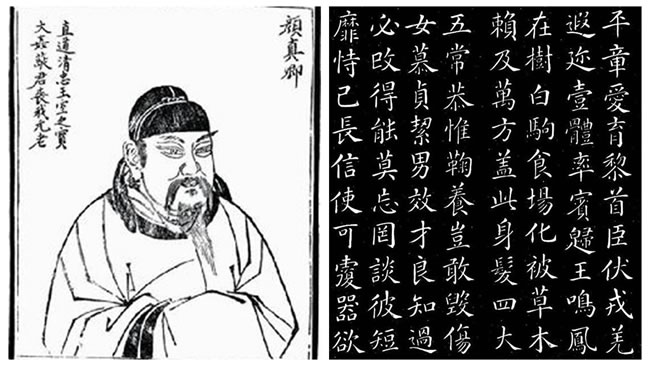 顔真卿
直道清忠王室之寶
大君喪我元老
平章愛育黎首臣伏戎羌
遐迩壹體率賓歸王鳴鳳
在樹白駒食場化被草木
賴及萬方蓋此身髮四大
五常恭惟鞠養豈敢毀傷
女慕貞絜男效才良知過
必改得能莫忘罔談彼短
靡恃己長信使可覆器欲